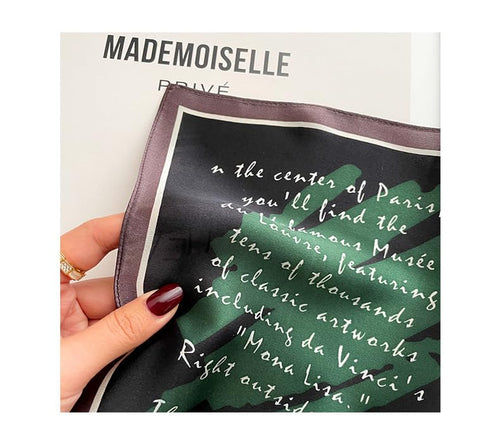 MADEMOISELLE
PRIVÉ
n the center of Paris,
you'll find the
famous Musée
du Louvre, featuring
tens of thousands
of classic artworks
including da Vinci's
"Mona Lisa."
Right outsid